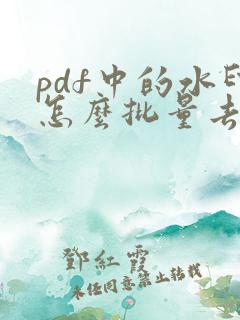 pdf中的水印
怎麼批量去
鄧紅霞
未經同意禁止轉載